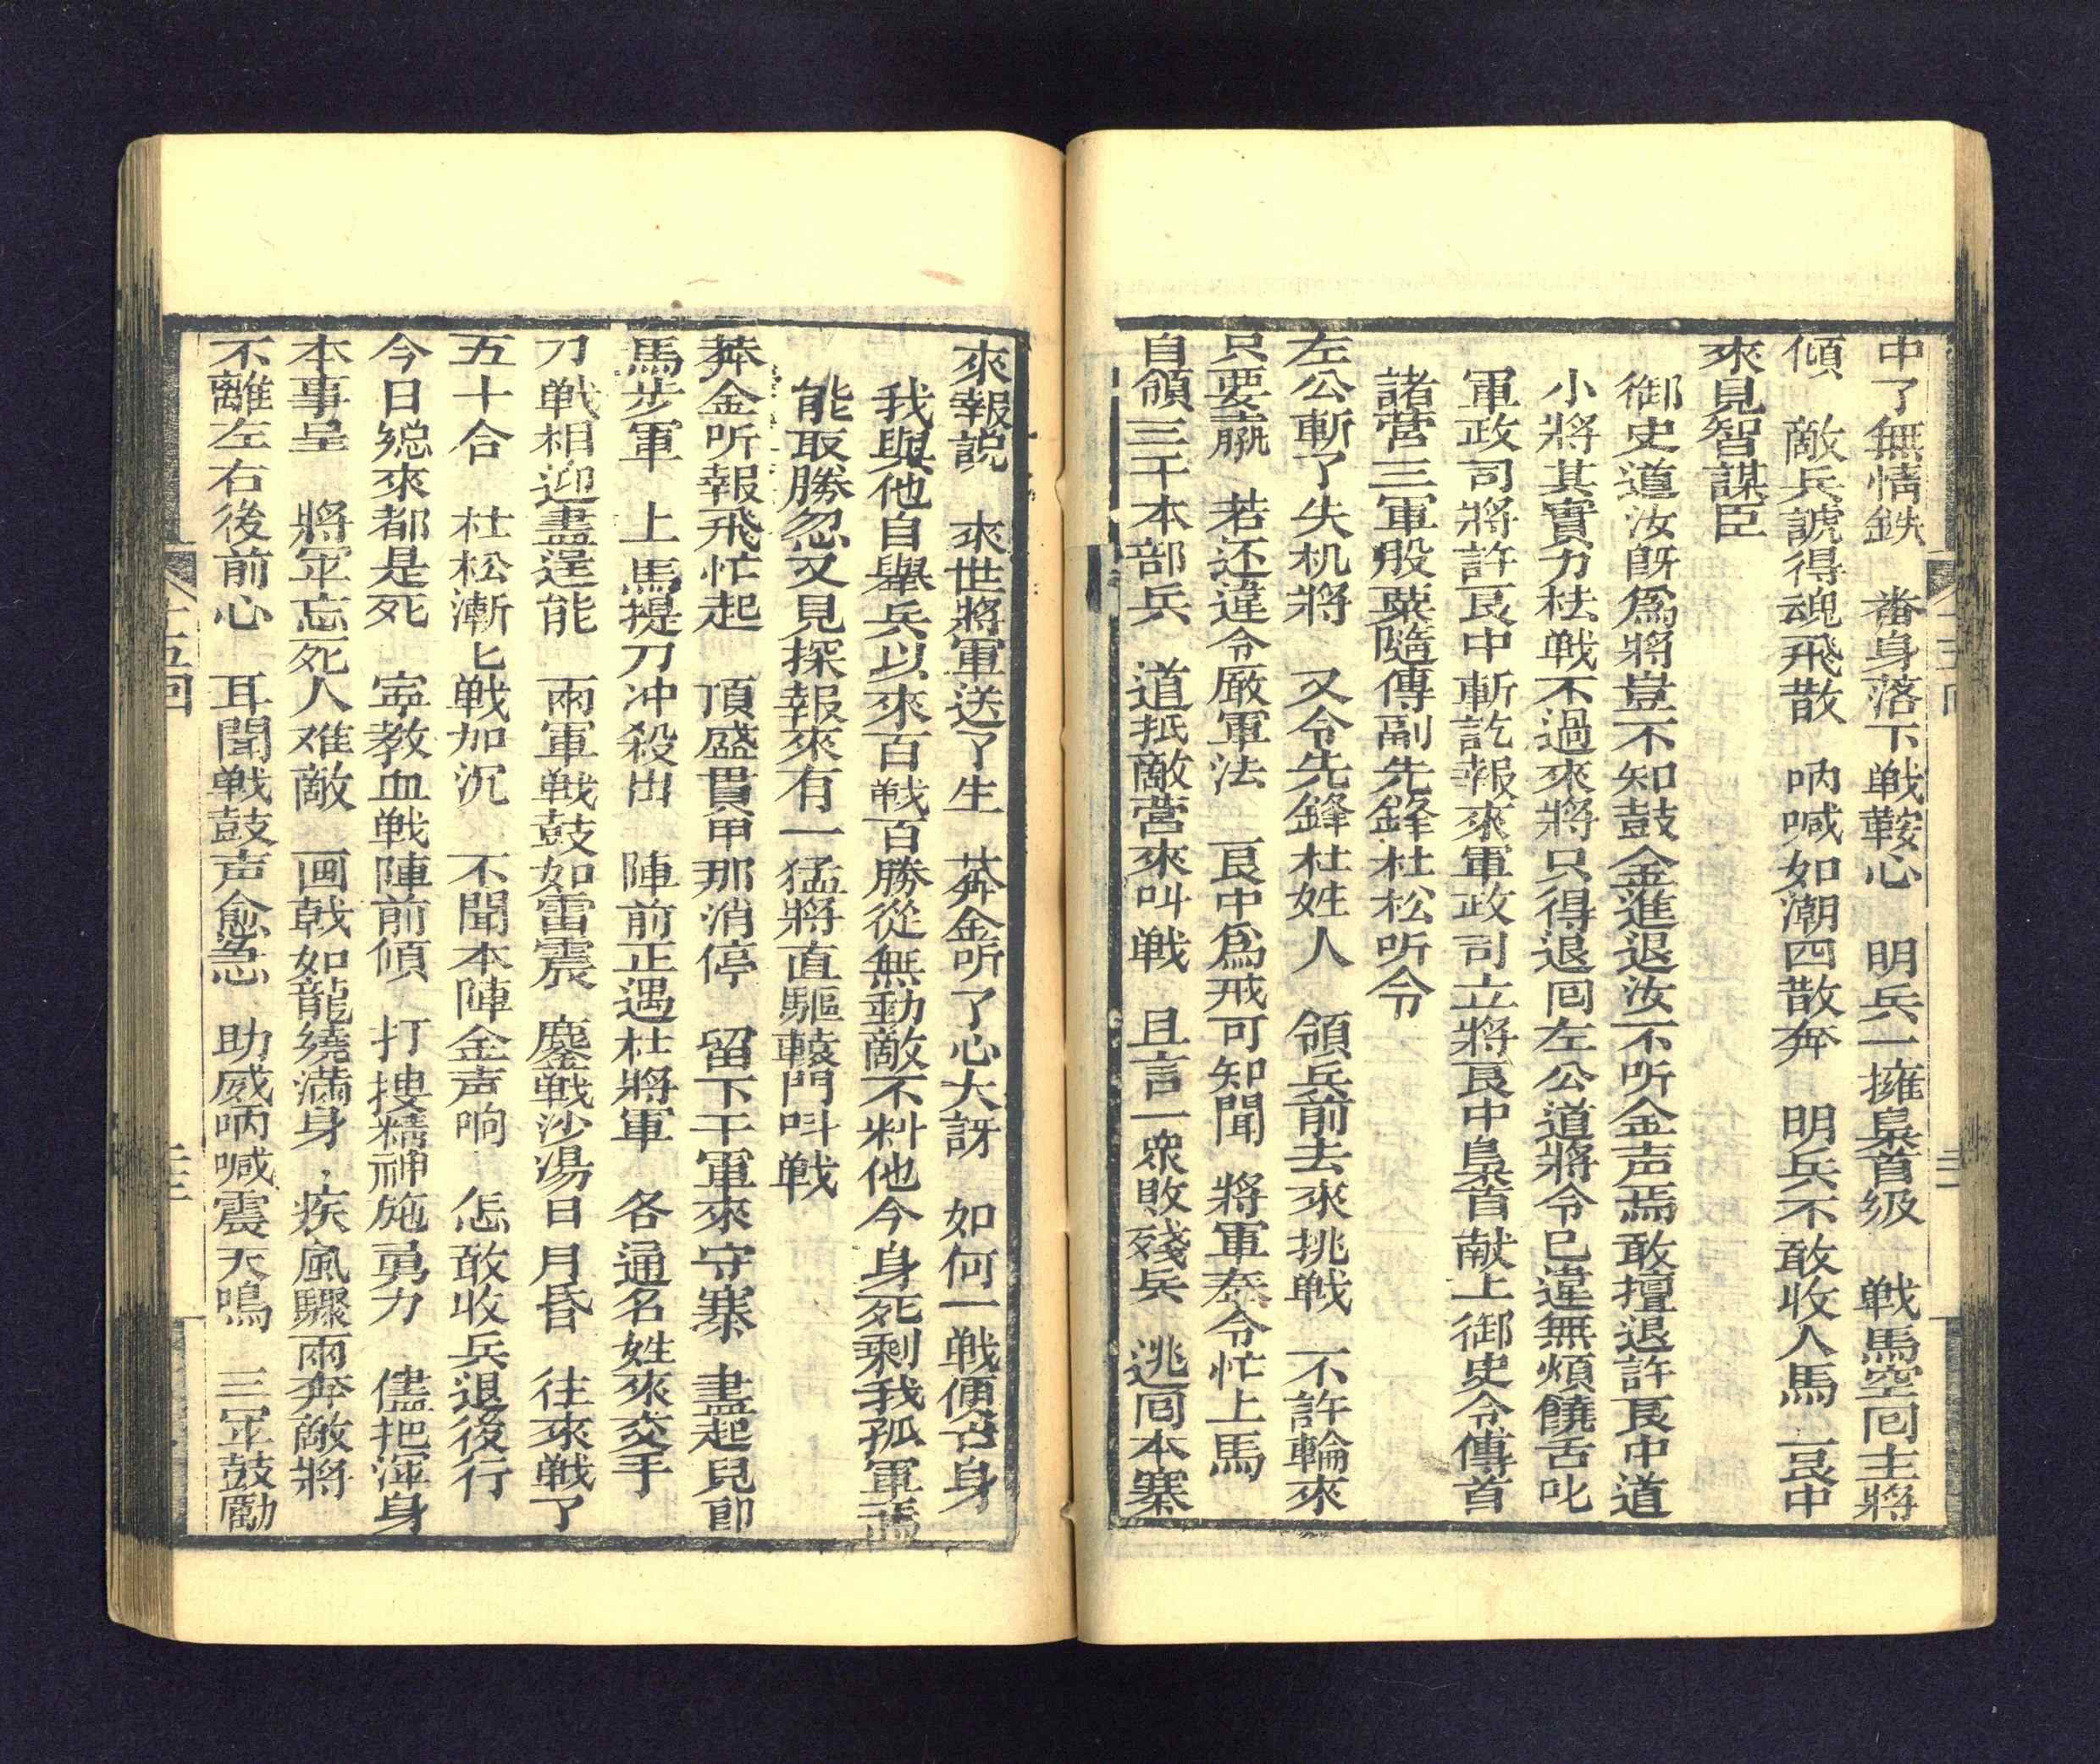 中了無情鉄　番身落下戦鞍心　明兵一擁梟首级　戦馬空囘主將
傾　敵兵諕得魂飛散　吶喊如潮四散奔　明兵不敢收人馬　艮中
來見智謀臣
御史道汝旣爲將豈不知鼓金進退汝不听金声焉敢擅退許艮中道
小將其實力怯戦不過來將只得退囘左公道將令已違無煩饒舌叱
軍政司將許艮中斬訖報來軍政司立將艮中梟首献上御史令傳首
諸營三軍股粟隨傳副先鋒杜松听令
左公斬了失机將　又令先鋒杜姓人　領兵前去來挑戦　不許輪來
只要贏　若还違令厳軍法　艮中爲戒可知聞　將軍奉令忙上馬
自領三千本部兵　道抵敵營來叫戦　且言一衆敗殘兵　逃囘本寨
來報説　來世將軍送了生　莽金听了心大訝　如何一戦便召身
我與他自舉兵以來百戦百勝從無動敵不料他今身死剩我孤軍焉
能取勝忽又見探報來有一猛將直驅轅門叫戦
莽金听報飛忙起　頂盛貫甲那消停　留下干軍來守寨　盡起兒郎
馬步軍　上馬提刀冲殺出　陣前正遇杜將軍　各通名姓來交手
刀戦相迎盡逞能　兩軍戦鼓如雷震　鏖戦沙湯日月昏　往來戦了
五十合　杜松漸匕戦加沉　不聞本陣金声响　怎敢收兵退後行
今日縂來都是死　寧教血戦陣前傾　打摟精神施勇力　儘把渾身
本事呈　將軍忘死人难敵　画戟如龍繞滿身　疾風驟雨奔敵將
不離左右後前心　耳聞戦鼓声愈急　助威吶喊震天鳴　三军鼓勵
十五囘